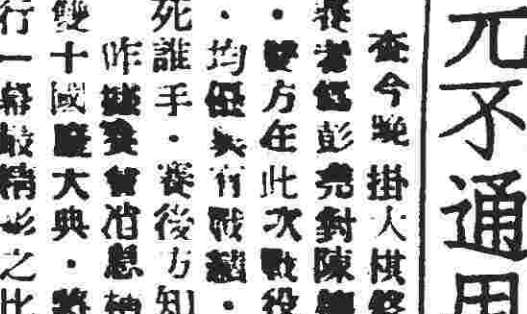 元不通用
查今晚掛大棋
彭堯對陳
・雙方在此次戰役
・均有戰績・
死誰手・賽後方知
昨會消息
雙十國慶大典・將
行一幕最精彩之比